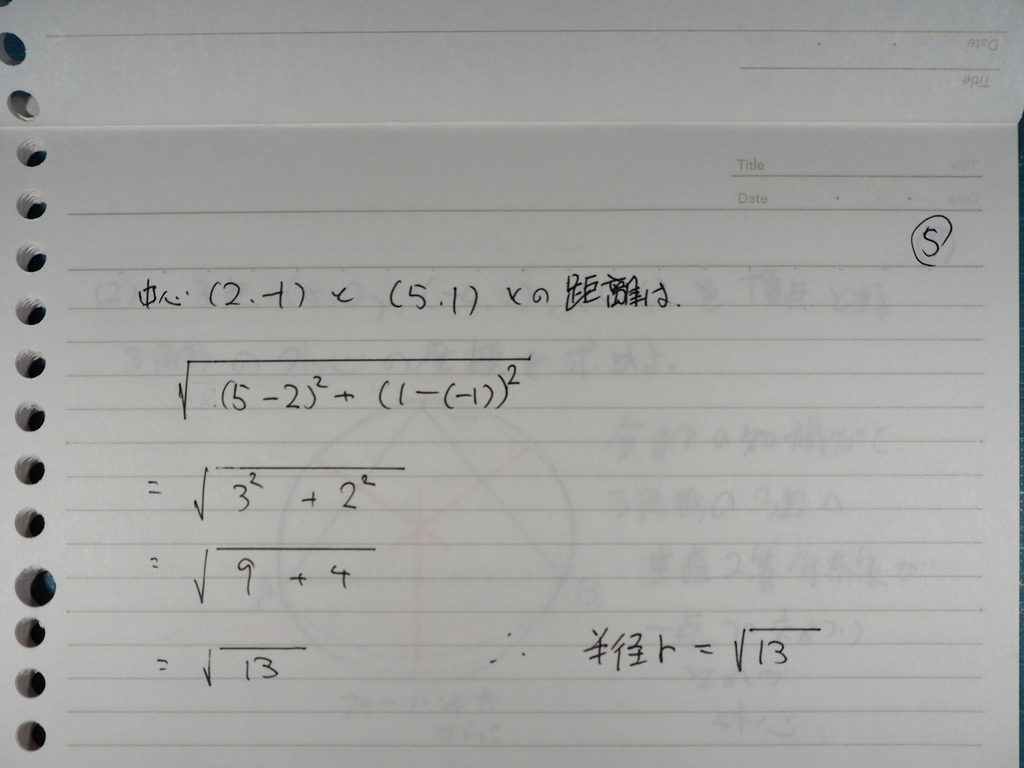 Date
Title
Title
Date
⑤
中心 (2.-1) と (5.1) との距離は.
√(5-2)² + (1-(-1))²
= √3² + 2²
= √9 + 4
= √13 ∴ 半径r = √13